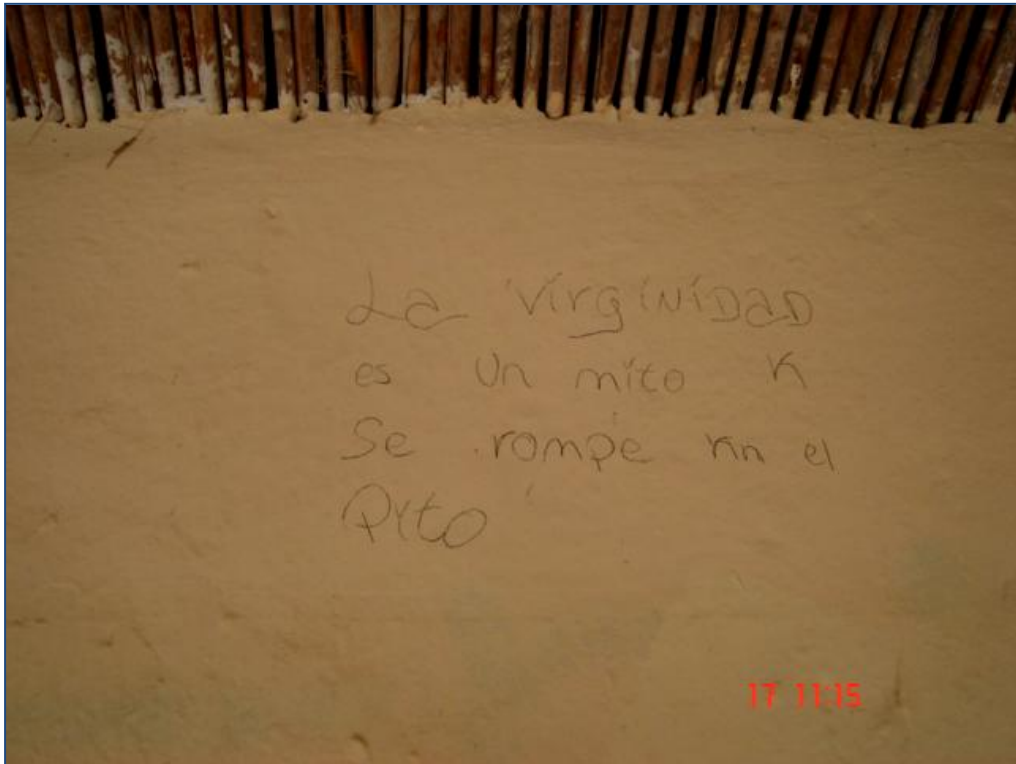 La virginidad
es un mito K
Se rompe Kn el
Pito
17 11:15